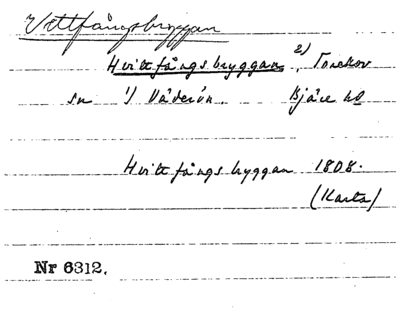 Vittfångsbryggan
Hvittfångsbryggan 2), Torekov
sn 1) Väderön. Bjäre hd
Hvittfångsbryggan 1808.
(Karta)
Nr 6312.